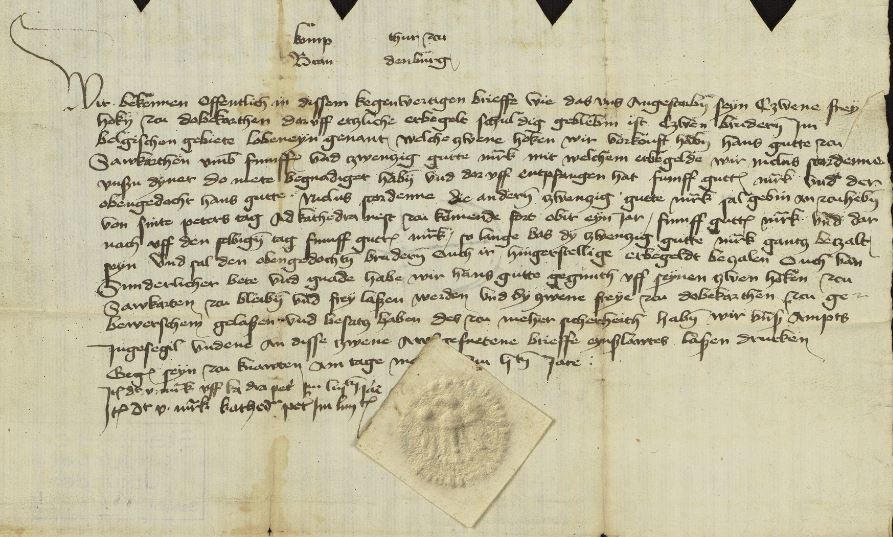 komp thur zcu
Bran denburg
Wir bekennen Offentlich in dissem kegenwertigen brieffe wie das uns Angestorbin seyn Czwene frey
hoken zcu dobekarthen doruff etzliche erbegelt schuldig geblebin ist Czwen brudern Im
belgischen gebiete lobeneyn genant welche zwene hoken wir vorkoufft habin hans gutte zcu
Sawkarthen umb funffe und zwenzig gutte mrk mit welchem erbegelde wir niclus stordenne
unsin dyner do mete begnadiget habin und dor uff entpfangen hat funff gutte mrk und der
obengedocht hans gutte Niclus stordenne die andern zwenzig gutte mrk sal gebin An zcuhebin
von sinte peters tag Ad kathedra nest zcu kumende fort obir eyn jar funff gutte mrk und dar
noch uff den selbigen tag funff gutte mrk so lange bas dy zwenzig gutte mrk gantz betzalt
seyn und sal den obengedochten brudern Ouch ir hingerstellige erbegeldt beczalen Ouch van
Sunderlicher bete und gnade habe wir hans gutte gegunth uff seynen zwen hoken zcu
Sawkarten zcu bleibin und frey lassen werden und dy zwene freye zcu dobekarthen zcu ge
bewerschem gelassen und besatz haben des zcu meher sicherheith habin wir unsers Ampts
Ingesegil undene An disse zwene brieffe eynslawtes lassen drucken
Gegeben seyn zcu knawten Am tage Im Jare
Item dt v mrk uff ka dra pet Im
Item dt v mrk kathed pet Im